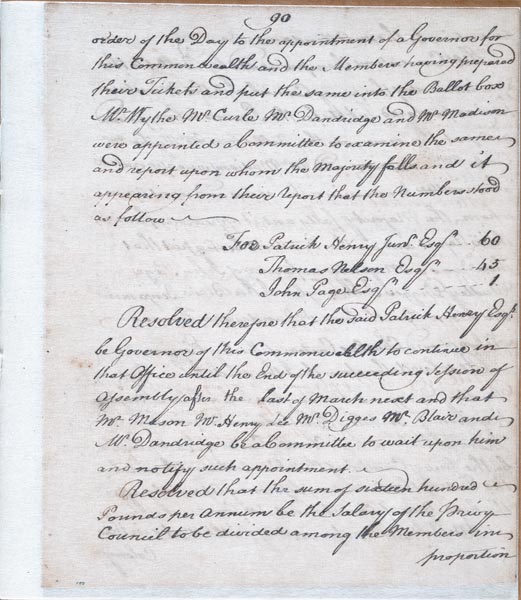 90
order of the Day to the appointment of a Governor for
this Commonwealth and the Members having prepared
their Tickets and put the same into the Ballot box
Mr. Wythe Mr. Curle Mr. Dandridge and Mr. Madison
were appointed a Committee to examine the same
and report upon whom the Majority falls and it
appearing from their report that the Numbers stood
as follow
For Patrick Henry Junr. Esqr. 60
Thomas Nelson Esqr. 45
John Page Esqr. 1.
Resolved therefore that the said Patrick Henry Esqr.
be Governor of this Commonwealth to continue in
that Office until the End of the succeeding Session of
Assembly after the last of March next and that
Mr. Mason Mr. Henry Lee Mr. Digges Mr. Blair and
Mr. Dandridge be a Committee to wait upon him
and notify such appointment.
Resolved that the sum of sixteen hundred
Pounds per Annum be the Salary of the Privy
Council to be divided among the Members in
proportion